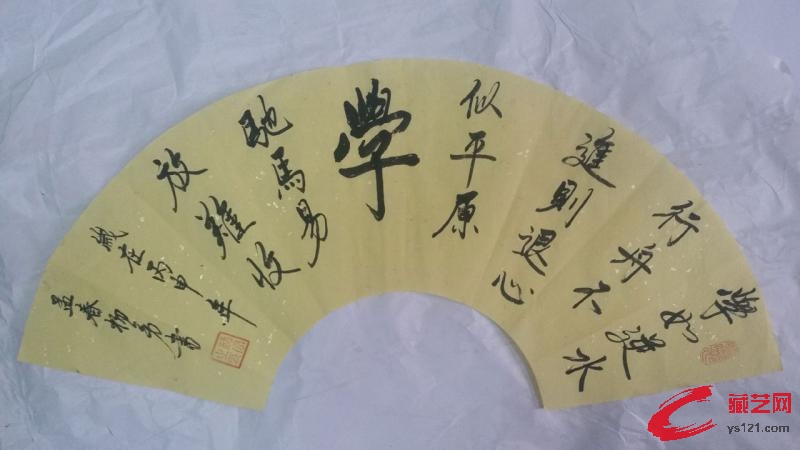 學如逆水
行舟不
進則退心
似平原
學
馳馬易
放難收
歲在丙申年
孟春書
藏艺网
ys121.com